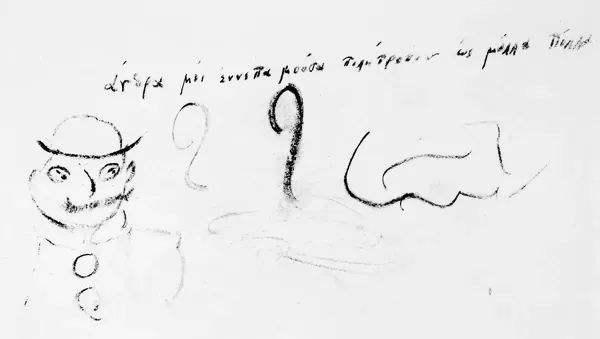 άνδρα μόι έννεπα μούσα πολύτροπον ώς μάλλα πολλα